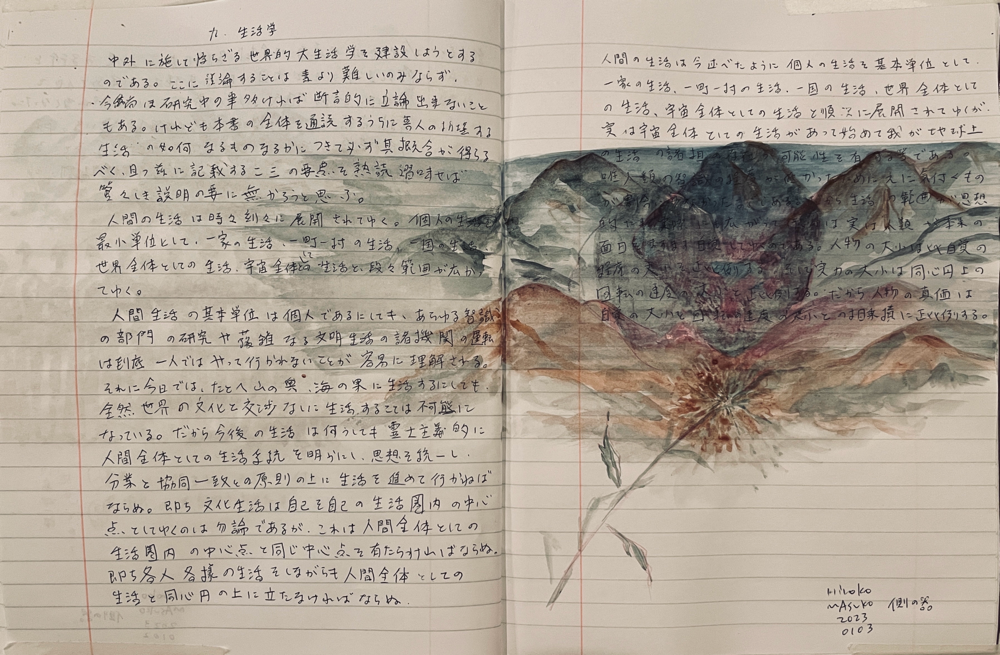 九. 生活学
中外に施して悖らざる世界的大生活学を建設しようとする
のである。ここに詳論することは素より難しいのみならず、
今尚は研究中の事多ければ断言的に立論出来ないこと
もある。けれども本書の全体を通読するうちに吾人の
生活の如何なるものなるかにつきて必ず其概念が得らる
べく、且つ茲に記載する二三の要点を熟読翫味せば
説明の要に無かろうと思ふ。
人間の生活は時々刻々に展開されてゆく。個人の生活を
最小単位として、一家の生活、一町一村の生活、一国の生活
世界全体としての生活、宇宙全体としての生活と、段々範囲が広が
てゆく。
人間生活の基本単位は個人であるにしても、あらゆる智識
の部門の研究や複雑なる文明生活の諸機関の運転
は到底一人ではやって行かれないことが容易に理解される。
それに今日では、たとへ山の奥、海の果に生活するにしても、
全然世界の文化と交渉なしに生活することは不可能に
なっている。だから今後の生活は何うしても霊士主義的に
人間全体としての生活系統を明かにし、思想を統一し、
分業と協同一致との原則の上に生活を進めて行かねば
ならぬ。即ち文化生活は自己を自己の生活圏内の中心
点としてゆくのは勿論であるが、これは人間全体としての
生活圏内の中心点と同じ中心点を有たなければならぬ。
即ち各人各様の生活をしながらも人間全体としての
生活と同心円の上に立たなければならぬ。
人間の生活は今述べたように個人の生活を基本単位として、
一家の生活、一町一村の生活、一国の生活、世界全体として
の生活、宇宙全体としての生活と順次に展開されてゆくが、
実は宇宙全体としての生活があって始めて我が地球上
の生活の諸相の可能性を有する
唯人類の
範囲が思想
は実は人類が本来の
面目である。人物の大小は自覚の
実力の大小は同心円上の
回転の速度の大小だから人物の真価は
自覚の大小と回転の速度の大小との相乗積に正比例する。
Hiroko
Masuko
2023
0103
側の器